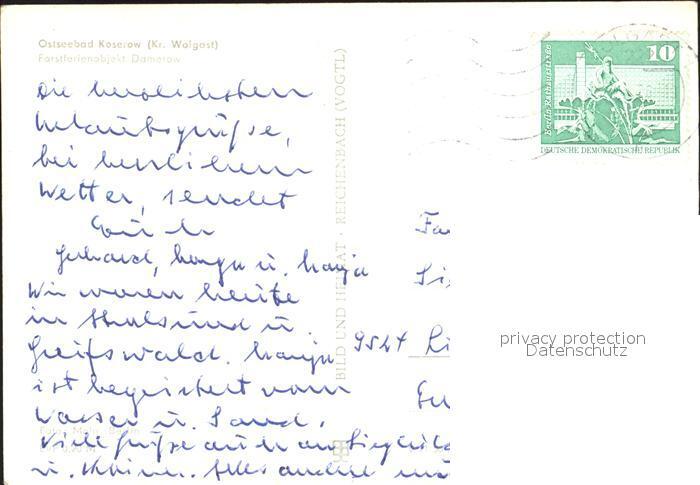 Ostseebad Koserow (Kr. Wolgast)
Forstferienobjekt Damerow
Die herzlichsten
Urlaubsgrüße,
bei herrlichem
Wetter, sendet
Euch
Gerhard, u. Manja
Wir waren heute
in Stralsund u.
Greifswald. Manja
ist begeistert vom
Wasser u. Sand.
Viele Grüße auch an
u. Alles andere
BILD UND HEIMAT · REICHENBACH (VOGTL)
10
Berlin Rathausstraße
DEUTSCHE DEMOKRATISCHE REPUBLIK
9524
privacy protection
Datenschutz